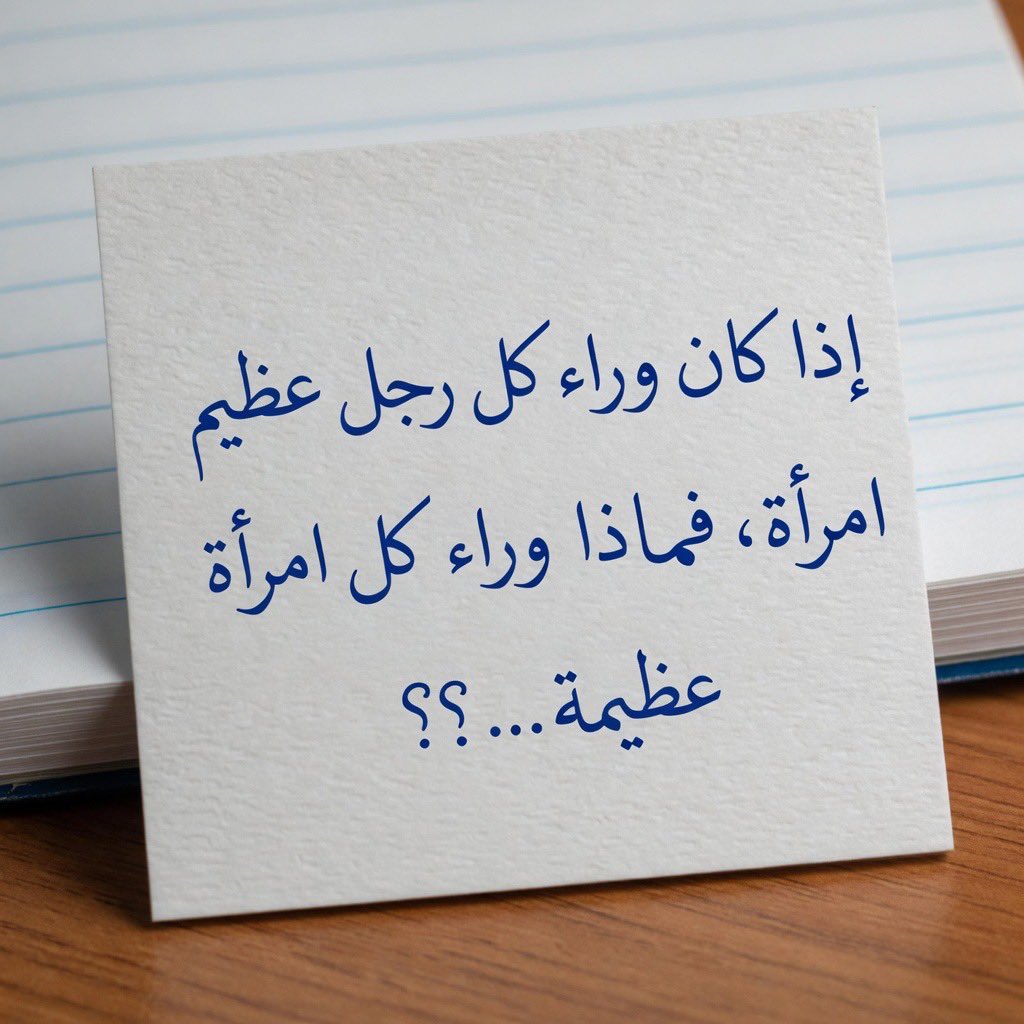 إذا كان وراء كل رجل عظيم
امرأة، فماذا وراء كل امرأة
عظيمة...؟؟